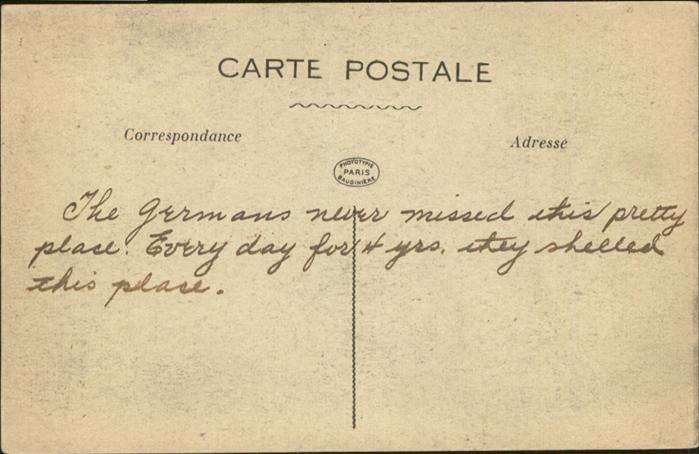 CARTE POSTALE
Correspondance
Adresse
PHOTOTYPIE
PARIS
BAUDINIÈRE
The Germans never missed this pretty
place. Every day for 4 yrs. they shelled
this place.